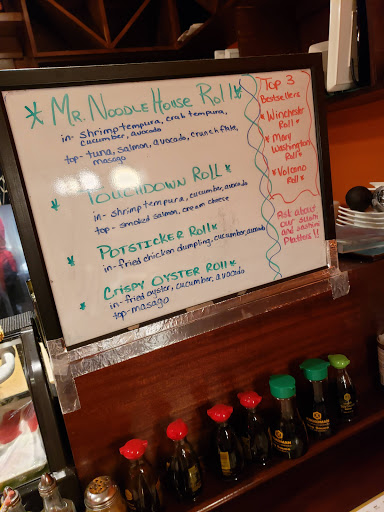 * Mr. Noodle House Roll *
in- shrimp tempura, crab tempura,
cucumber, avocado
top- tuna, salmon, avocado, crunch flake,
masago
* Touchdown Roll *
in- shrimp tempura, cucumber, avocado
top- smoked salmon, cream cheese
* Potsticker Roll *
in- fried chicken dumpling, cucumber, avocado
* Crispy Oyster Roll *
in- fried oyster, cucumber, avocado
top- masago
Top 3
Bestsellers
* Winchester
Roll *
* Mary
Washington
Roll *
* Volcano
Roll *
Ask about
our sushi
and sashimi
Platters!!
KIKKOMAN